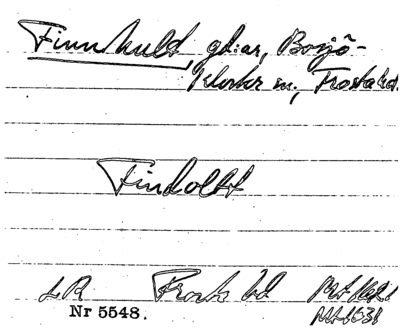 Finnhult, gd:ar, Bosjö-
kloster sn., Frosta hd.
Findoltt
LR Frosta hd
Nr 5548.